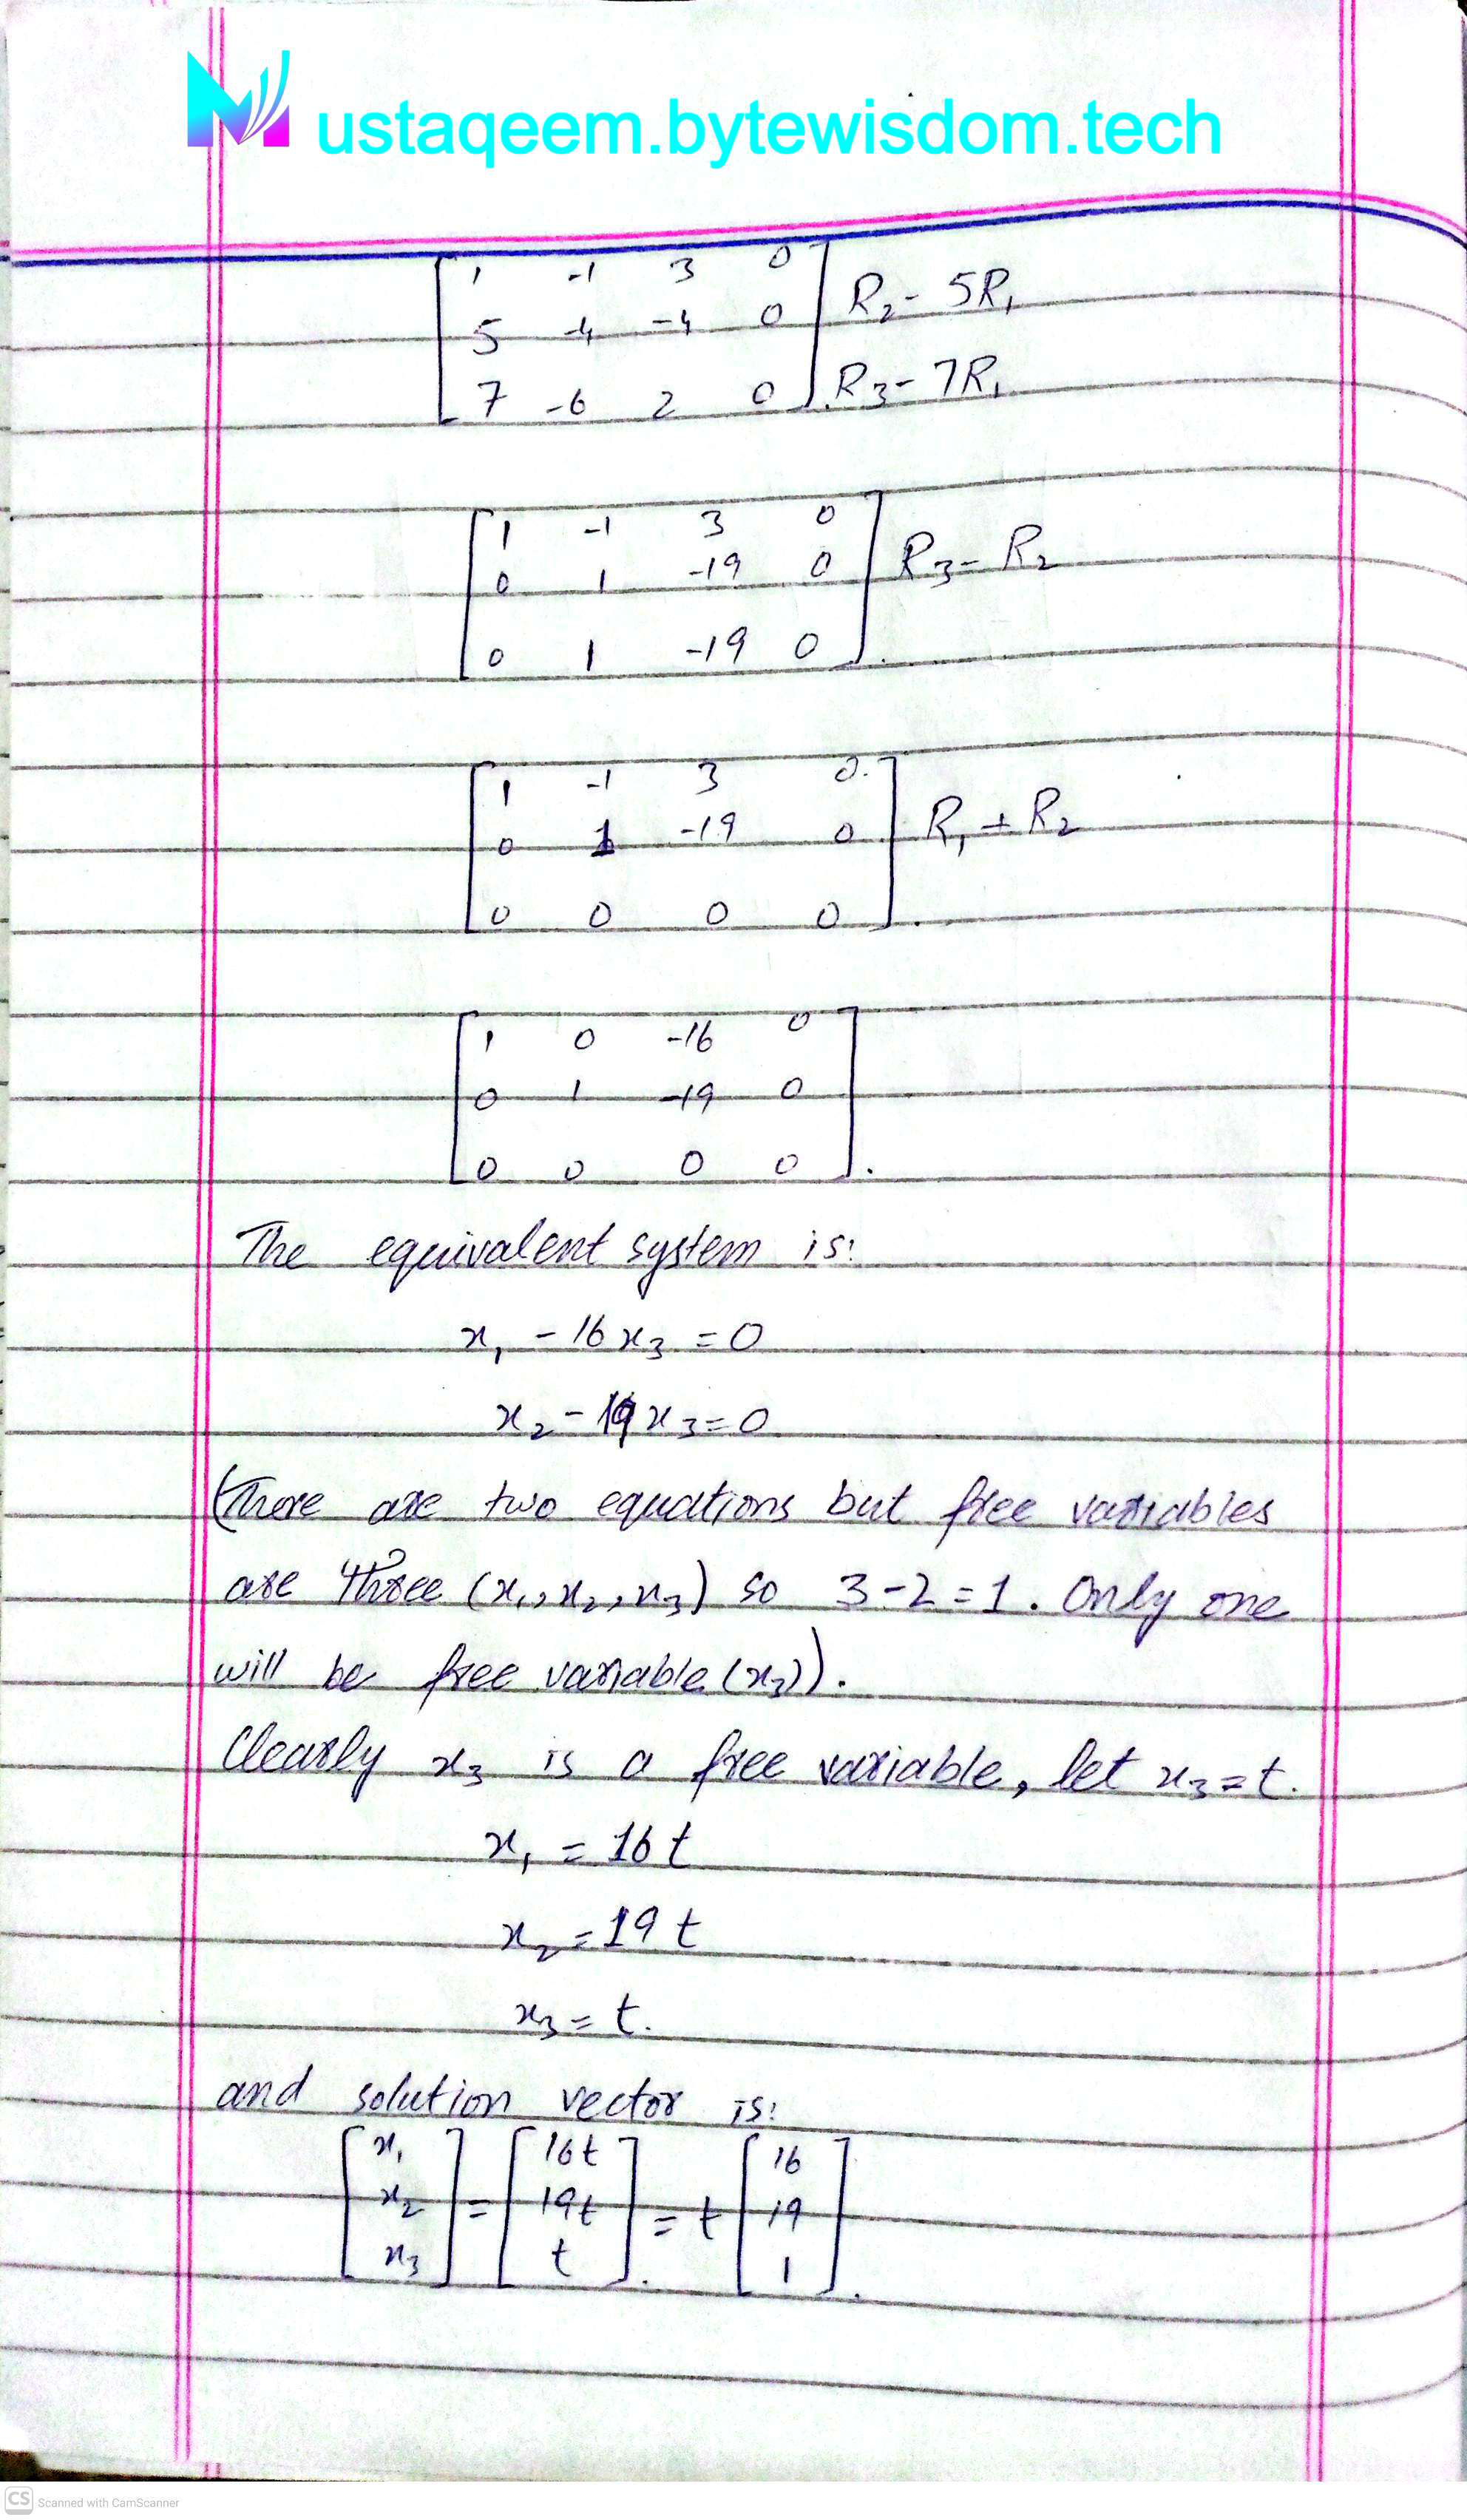 Mustaqeem.bytewisdom.tech
1 -1 3 0
5 -4 -4 0 R₂- 5R₁
7 -6 2 0 R₃- 7R₁
1 -1 3 0
0 1 -19 0 R₃- R₂
0 1 -19 0
1 -1 3 0
0 1 -19 0 R₁ + R₂
0 0 0 0
1 0 -16 0
0 1 -19 0
0 0 0 0
The equivalent system is:
x₁ - 16x₃ = 0
x₂ - 19x₃ = 0
(There are two equations but free variables
are three (x₁, x₂, x₃) so 3-2=1. Only one
will be free variable (x₃)).
Clearly x₃ is a free variable, let x₃=t.
x₁ = 16t
x₂ = 19t
x₃ = t.
and solution vector is:
x₁ 16t 16
x₂ = 19t = t 19
x₃ t 1
CS Scanned with CamScanner